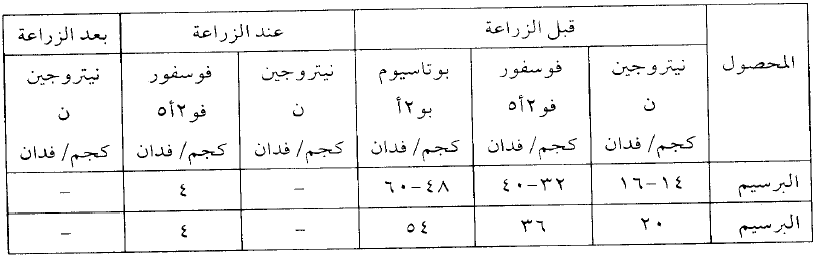 المحصول قبل الزراعة عند الزراعة بعد الزراعة
نيتروجين فوسفور بوتاسيوم نيتروجين فوسفور نيتروجين
ن فو٢أ٥ بو٢أ ن فو٢أ٥ ن
كجم/ فدان كجم/ فدان كجم/ فدان كجم/ فدان كجم/ فدان كجم/ فدان
البرسيم ١٤-١٦ ٣٢-٤٠ ٤٨-٦٠ - ٤ -
البرسيم ٢٠ ٣٦ ٥٤ - ٤ -